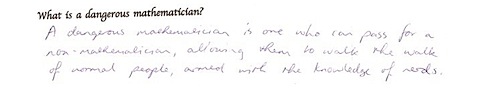 What is a dangerous mathematician?
A dangerous mathematician is one who can pass for a
non-mathematician, allowing them to walk the walk
of normal people, armed with the knowledge of nerds.